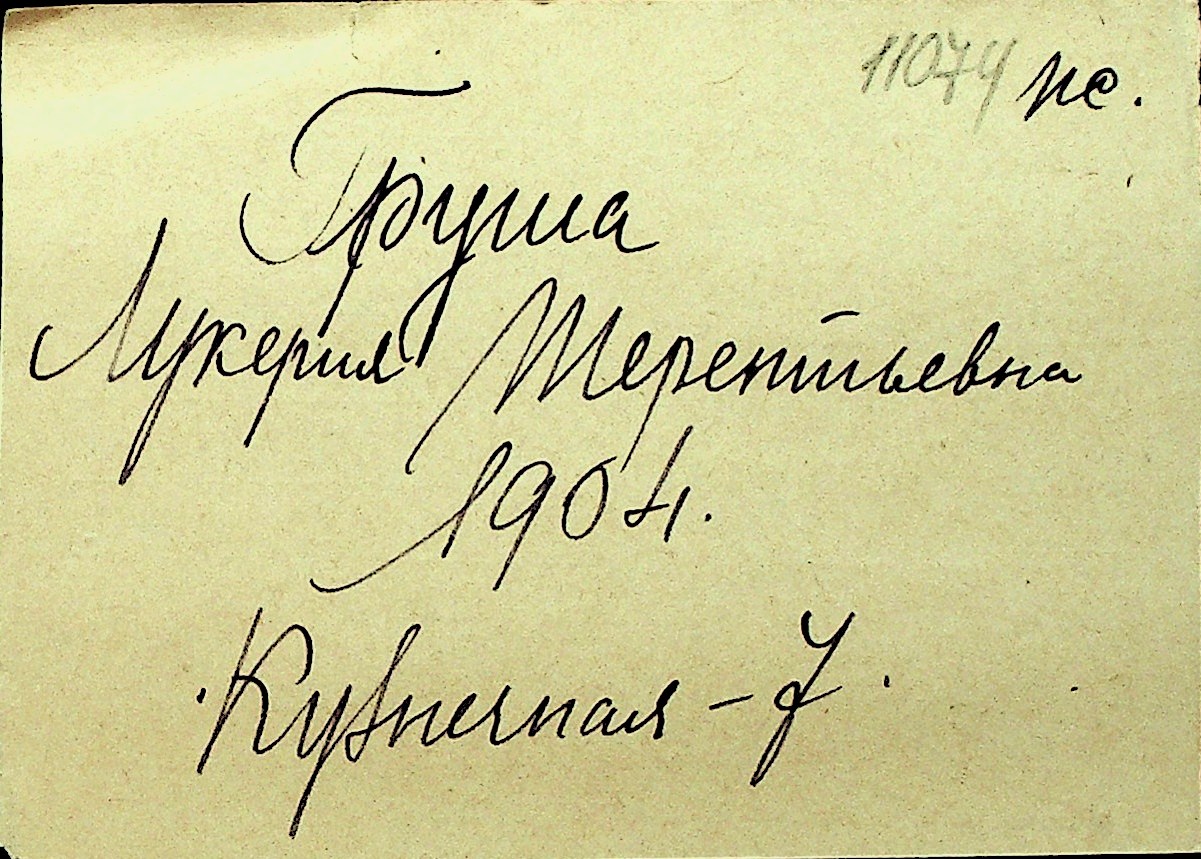 11074 пс.
Груша
Лукерия Терентьевна
1904.
Кузнечная – 7.